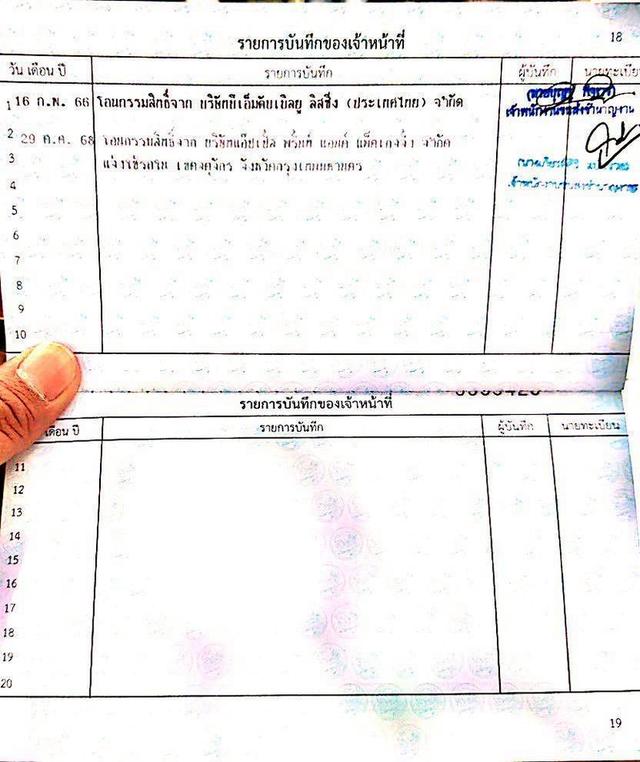 18
รายการบันทึกของเจ้าหน้าที่
วัน เดือน ปี รายการบันทึก ผู้บันทึก นายทะเบียน
1 16 ก.พ. 66 โอนกรรมสิทธิ์จาก บริษัทบีเอ็มดับเบิลยู ลิสซิ่ง (ประเทศไทย) จำกัด
เจ้าพนักงานขนส่งชำนาญงาน
2 29 ต.ค. 68 โอนกรรมสิทธิ์จาก บริษัทแอ๊ปเปิ้ล พริ้นท์ แอนด์ แพ็คเกจจิ้ง จำกัด
3 เขตจตุจักร จังหวัดกรุงเทพมหานคร
4 เจ้าพนักงานขนส่งชำนาญงาน
5
6
7
8
9
10
รายการบันทึกของเจ้าหน้าที่
เดือน ปี รายการบันทึก ผู้บันทึก นายทะเบียน
11
12
13
14
15
16
17
18
19
20
19